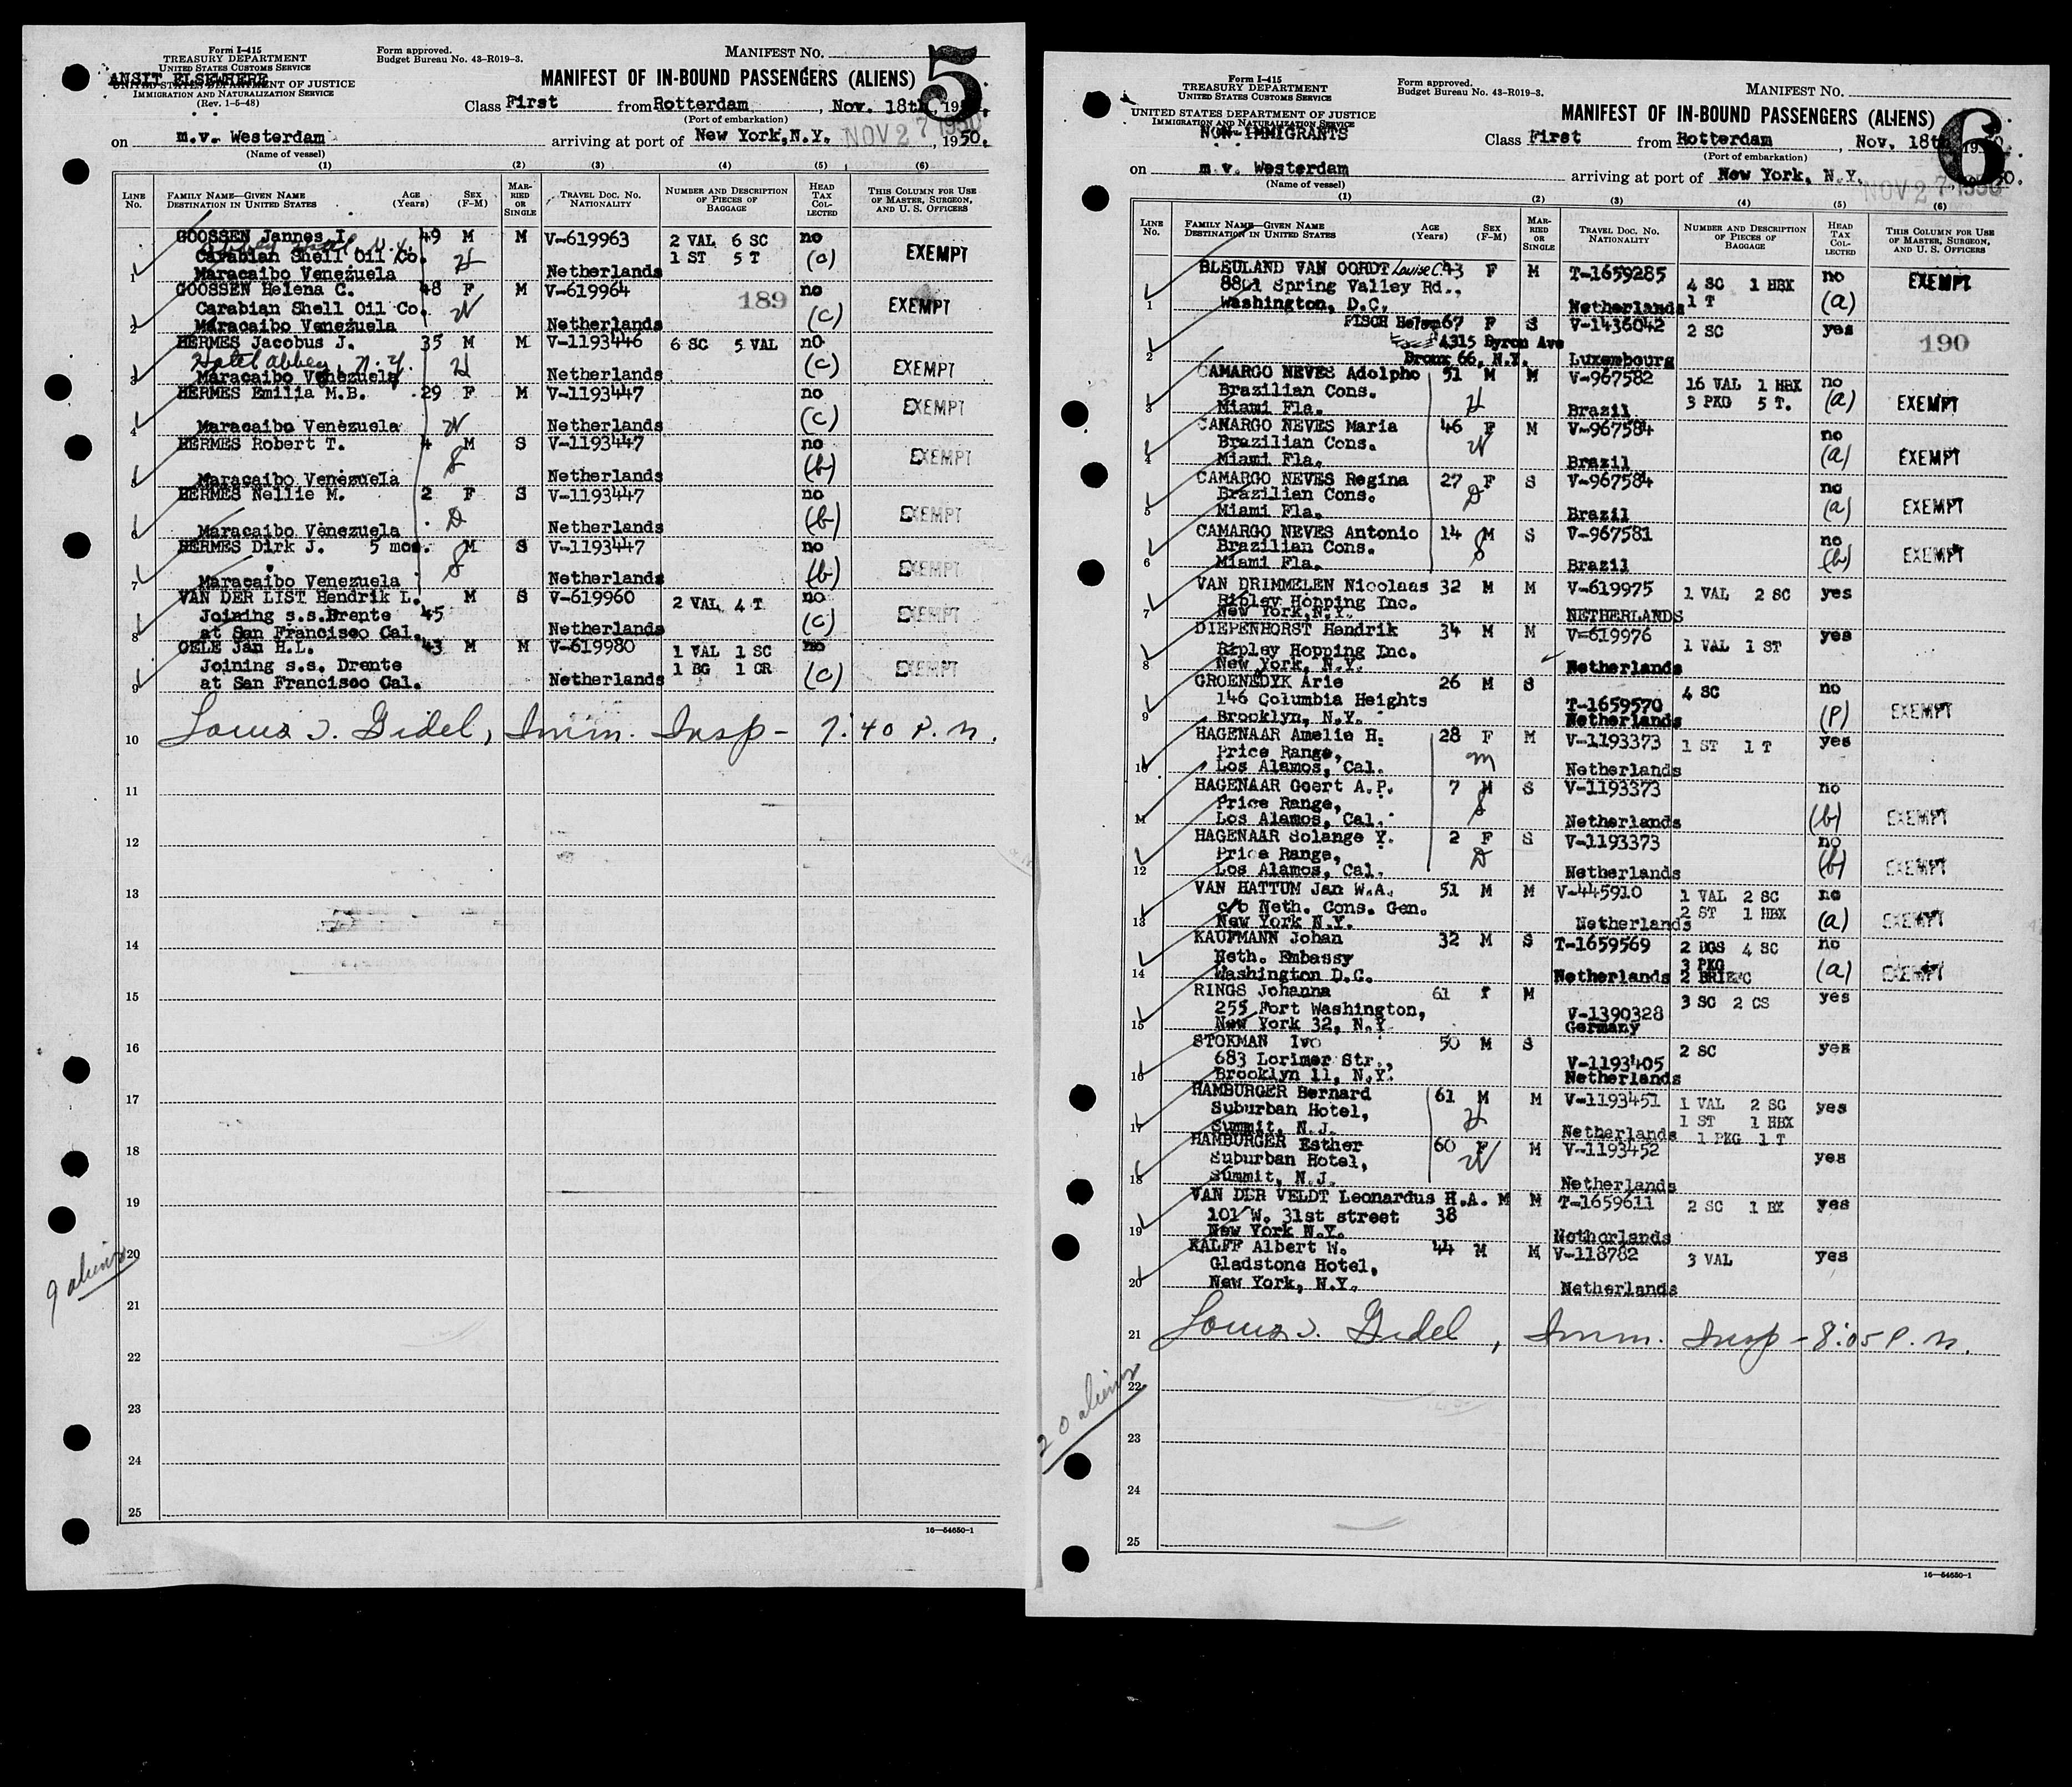 Form I-415
TREASURY DEPARTMENT
UNITED STATES CUSTOMS SERVICE
ANSIT ELSEWHERE
UNITED STATES DEPARTMENT OF JUSTICE
IMMIGRATION AND NATURALIZATION SERVICE
(Rev. 1-5-48)
Form approved.
Budget Bureau No. 43-R019-3.
MANIFEST NO.
5
MANIFEST OF IN-BOUND PASSENGERS (ALIENS)
Class First from Rotterdam, Nov. 18th, 19
(Port of embarkation)
on m.v. Westerdam arriving at port of New York, N.Y. NOV 27 1950, 1950.
(Name of vessel)
(1) (2) (3) (4) (5) (6)
LINE No. FAMILY NAME—GIVEN NAME DESTINATION IN UNITED STATES AGE (Years) SEX (F-M) MARRIED OR SINGLE TRAVEL DOC. NO. NATIONALITY NUMBER AND DESCRIPTION OF PIECES OF BAGGAGE HEAD TAX COLLECTED THIS COLUMN FOR USE OF MASTER, SURGEON, AND U. S. OFFICERS
GOOSSEN Jannes I. 49 M M V-619963 2 VAL 6 SC no
Carabian Shell Oil Co. H 1 ST 5 T (c) EXEMPT
1 Maracaibo Venezuela Netherlands
GOOSSEN Helena C. 48 F M V-619964 189 no
Carabian Shell Oil Co. W (c) EXEMPT
2 Maracaibo Venezuela Netherlands
HERMES Jacobus J. 35 M M V-1193446 6 SC 5 VAL no
Hotel Abbey, N.Y. H (c) EXEMPT
3 Maracaibo Venezuela Netherlands
HERMES Emilia M.B. 29 F M V-1193447 no
4 Maracaibo Venezuela W Netherlands (c) EXEMPT
HERMES Robert T. 4 M S V-1193447 no
5 Maracaibo Venezuela S Netherlands (b) EXEMPT
HERMES Nellie M. 2 F S V-1193447 no
6 Maracaibo Venezuela D Netherlands (b) EXEMPT
HERMES Dirk J. 5 mos. M S V-1193447 no
7 Maracaibo Venezuela S Netherlands (b) EXEMPT
VAN DER LIST Hendrik L. M S V-619960 2 VAL 4 T no
Joining s.s. Drente 45 (c) EXEMPT
8 at San Francisco Cal. Netherlands
OELE Jan H.L. 43 M M V-619980 1 VAL 1 SC no
Joining s.s. Drente 1 BG 1 CR (c) EXEMPT
9 at San Francisco Cal. Netherlands
10 Louis J. Gidel, Imm. Insp - 7:40 P.M.
11
12
13
14
15
16
17
18
19
20
9 aliens
21
22
23
24
25
16—54650-1
Form I-415
TREASURY DEPARTMENT
UNITED STATES CUSTOMS SERVICE
UNITED STATES DEPARTMENT OF JUSTICE
IMMIGRATION AND NATURALIZATION SERVICE
NON-IMMIGRANTS
Form approved.
Budget Bureau No. 43-R019-3.
MANIFEST NO.
6
MANIFEST OF IN-BOUND PASSENGERS (ALIENS)
Class First from Rotterdam, Nov. 18th, 19
(Port of embarkation)
on m.v. Westerdam arriving at port of New York, N.Y. NOV 27 1950
(Name of vessel)
(1) (2) (3) (4) (5) (6)
LINE No. FAMILY NAME—GIVEN NAME DESTINATION IN UNITED STATES AGE (Years) SEX (F-M) MARRIED OR SINGLE TRAVEL DOC. NO. NATIONALITY NUMBER AND DESCRIPTION OF PIECES OF BAGGAGE HEAD TAX COLLECTED THIS COLUMN FOR USE OF MASTER, SURGEON, AND U. S. OFFICERS
BLEULAND VAN OORDT Louise C. 43 F M T-1659285 no EXEMPT
8801 Spring Valley Rd., 4 SC 1 HBX
1 Washington, D.C. Netherlands 1 T (a)
FISCH Helen 67 F S V-1436042 2 SC yes
4315 Byron Ave 190
2 Bronx 66, N.Y. Luxembourg
CAMARGO NEVES Adolpho 51 M M V-967582 16 VAL 1 HBX no
Brazilian Cons. H 3 PKG 5 T. (a) EXEMPT
3 Miami Fla. Brazil
CAMARGO NEVES Maria 46 F M V-967584 no
Brazilian Cons. W (a) EXEMPT
4 Miami Fla. Brazil
CAMARGO NEVES Regina 27 F S V-967584 no
Brazilian Cons. D (a) EXEMPT
5 Miami Fla. Brazil
CAMARGO NEVES Antonio 14 M S V-967581 no
Brazilian Cons. S (b) EXEMPT
6 Miami Fla. Brazil
VAN DRIMMELEN Nicolaas 32 M M V-619975 1 VAL 2 SC yes
Ripley Hopping Inc.
7 New York, N.Y. NETHERLANDS
DIEPENHORST Hendrik 34 M M V=619976 yes
Ripley Hopping Inc. 1 VAL 1 ST
8 New York, N.Y. Netherlands
GROENEDYK Arie 26 M S 4 SC no
146 Columbia Heights T-1659570
9 Brooklyn, N.Y. Netherlands (P) EXEMPT
HAGENAAR Amelia H. 28 F M V-1193373 1 ST 1 T yes
Price Range, M
10 Los Alamos, Cal. Netherlands
HAGENAAR Geert A.P. 7 M S V-1193373 no
Price Range, S (b) EXEMPT
11 Los Alamos, Cal. Netherlands
HAGENAAR Solange Y. 2 F S V-1193373 no
Price Range, D (b) EXEMPT
12 Los Alamos, Cal. Netherlands
VAN HATTUM Jan W.A. 51 M M V-445910 1 VAL 2 SC no
c/o Neth. Cons. Gen. 2 ST 1 HBX
13 New York N.Y. Netherlands (a) EXEMPT
KAUFMANN Johan 32 M S T-1659569 2 BGS 4 SC no
Neth. Embassy 3 PKG
14 Washington D.C. Netherlands 2 BRIEFC (a) EXEMPT
RINGS Johanna 61 F M 3 SC 2 CS yes
255 Fort Washington, V-1390328
15 New York 32, N.Y. Germany
STOKMAN Ivo 50 M S 2 SC yes
683 Lorimer Str., V-1193405
16 Brooklyn 11, N.Y. Netherlands
HAMBURGER Bernard 61 M M V-1193451 1 VAL 2 SC yes
Suburban Hotel, H 1 ST 1 HBX
17 Summit, N.J. Netherlands 1 PKG 1 T
HAMBURGER Esther 60 F M V-1193452 yes
Suburban Hotel, W
18 Summit, N.J. Netherlands
VAN DER VELDT Leonardus H.A. M M T-1659611 2 SC 1 BX yes
101 W. 31st street 38
19 New York N.Y. Netherlands
KALFF Albert W. 44 M M V-118782 3 VAL yes
Gladstone Hotel,
20 New York, N.Y. Netherlands
21 Louis J. Gidel, Imm. Insp - 8:05 P.M.
22
20 aliens
23
24
25
16—54650-1